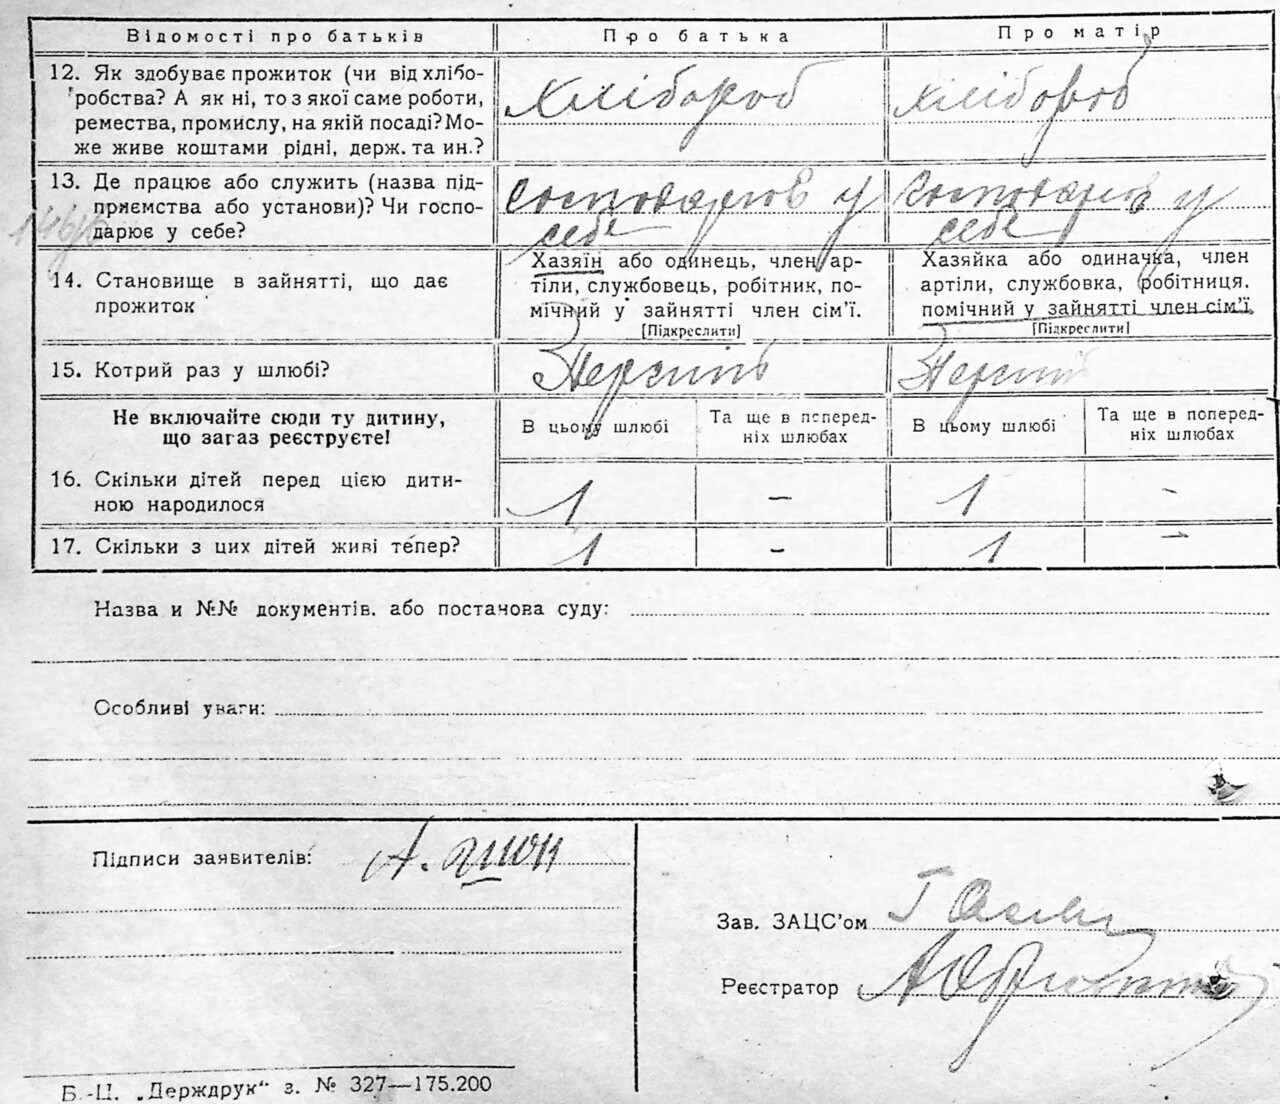 Відомості про батьків Про батька Про матір
12. Як здобуває прожиток (чи від хлібо-
робства? А як ні, то з якої саме роботи,
ремества, промислу, на якій посаді? Мо-
же живе коштами рідні, держ. та ин.?
Хлібороб
хлібороб
13. Де працює або служить (назва під-
приємства або установи)? Чи госпо-
дарює у себе?
господарює у
себе
господарює у
себе
14. Становище в зайнятті, що дає
прожиток
Хазяїн або одинець, член ар-
тіли, службовець, робітник, по-
мічний у зайнятті член сім'ї.
[Підкреслити]
Хазяйка або одиначка, член
артіли, службовка, робітниця.
помічний у зайнятті член сім'ї.
[Підкреслити]
15. Котрий раз у шлюбі?
Не включайте сюди ту дитину,
що зараз реєструєте!
В цьому шлюбі
Та ще в поперед-
ніх шлюбах
В цьому шлюбі
Та ще в поперед-
ніх шлюбах
16. Скільки дітей перед цією дити-
ною народилося
1 – 1 –
17. Скільки з цих дітей живі тепер?
1 – 1 –
Назва и №№ документів. або постанова суду:
Особливі уваги:
Підписи заявителів: А.
Зав. ЗАЦС'ом
Реєстратор
Б.-Ц. „Держдрук“ з. № 327—175.200